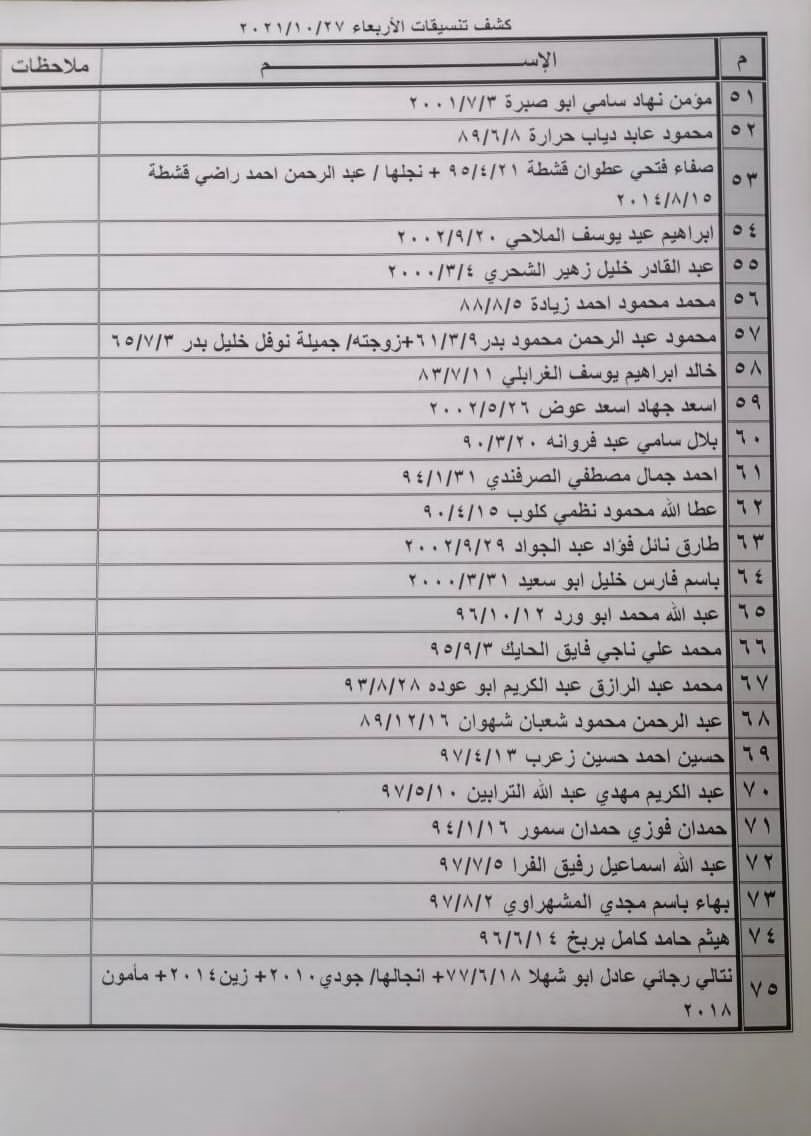 كشف تنسيقات الأربعاء ٢٠٢١/١٠/٢٧
م الإســـــــــــــم ملاحظات
٥١ مؤمن نهاد سامي ابو صبرة ٢٠٠١/٧/٣
٥٢ محمود عابد دياب حرارة ٨٩/٦/٨
٥٣ صفاء فتحي عطوان قشطة ٩٥/٤/٢١ + نجلها / عبد الرحمن احمد راضي قشطة
٢٠١٤/٨/١٥
٥٤ ابراهيم عيد يوسف الملاحي ٢٠٠٢/٩/٢٠
٥٥ عبد القادر خليل زهير الشحري ٢٠٠٠/٣/٤
٥٦ محمد محمود احمد زيادة ٨٨/٨/٥
٥٧ محمود عبد الرحمن محمود بدر ٦١/٣/٩+زوجته/ جميلة نوفل خليل بدر ٦٥/٧/٣
٥٨ خالد ابراهيم يوسف الغرابلي ٨٣/٧/١١
٥٩ اسعد جهاد اسعد عوض ٢٠٠٢/٥/٢٦
٦٠ بلال سامي عبد فروانه ٩٠/٣/٢٠
٦١ احمد جمال مصطفي الصرفندي ٩٤/١/٣١
٦٢ عطا الله محمود نظمي كلوب ٩٠/٤/١٥
٦٣ طارق نائل فؤاد عبد الجواد ٢٠٠٢/٩/٢٩
٦٤ باسم فارس خليل ابو سعيد ٢٠٠٠/٣/٣١
٦٥ عبد الله محمد ابو ورد ٩٦/١٠/١٢
٦٦ محمد علي ناجي فايق الحايك ٩٥/٩/٣
٦٧ محمد عبد الرازق عبد الكريم ابو عوده ٩٣/٨/٢٨
٦٨ عبد الرحمن محمود شعبان شهوان ٨٩/١٢/١٦
٦٩ حسين احمد حسين زعرب ٩٧/٤/١٣
٧٠ عبد الكريم مهدي عبد الله الترابين ٩٧/٥/١٠
٧١ حمدان فوزي حمدان سمور ٩٤/١/١٦
٧٢ عبد الله اسماعيل رفيق الفرا ٩٧/٧/٥
٧٣ بهاء باسم مجدي المشهراوي ٩٧/٨/٢
٧٤ هيثم حامد كامل بربخ ٩٦/٦/١٤
٧٥ نتالي رجائي عادل ابو شهلا ٧٧/٦/١٨+ انجالها/ جودي٢٠١٠+ زين٢٠١٤+ مأمون
٢٠١٨